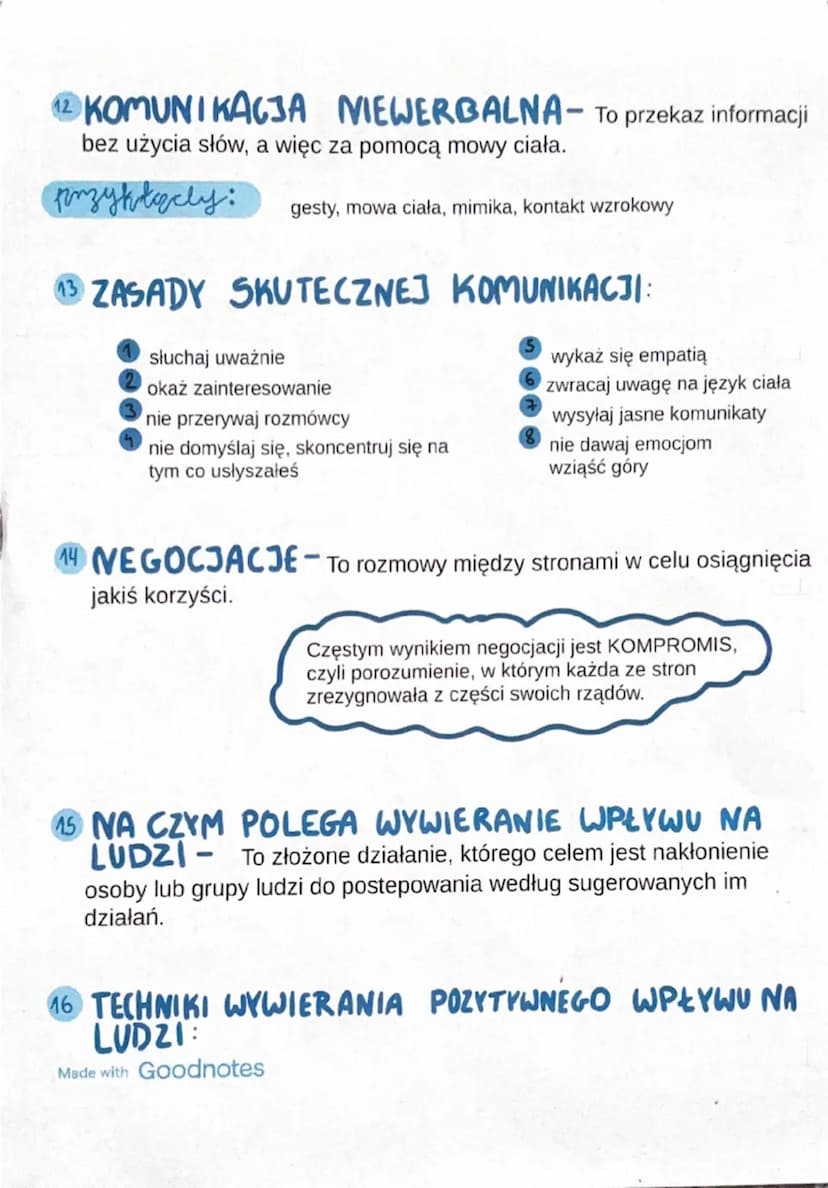 12 KOMUNIKACJA NIEWERBALNA- To przekaz informacji
bez użycia słów, a więc za pomocą mowy ciała.
przykłady: gesty, mowa ciała, mimika, kontakt wzrokowy
13 ZASADY SKUTECZNEJ KOMUNIKACJI:
1 słuchaj uważnie
2 okaż zainteresowanie
3 nie przerywaj rozmówcy
4 nie domyślaj się, skoncentruj się na
tym co usłyszałeś
5 wykaż się empatią
6 zwracaj uwagę na język ciała
7 wysyłaj jasne komunikaty
8 nie dawaj emocjom
wziąść góry
14 NEGOCJACJE- To rozmowy między stronami w celu osiągnięcia
jakiś korzyści.
Częstym wynikiem negocjacji jest KOMPROMIS,
czyli porozumienie, w którym każda ze stron
zrezygnowała z części swoich rządów.
15 NA CZYM POLEGA WYWIERANIE WPŁYWU NA
LUDZI- To złożone działanie, którego celem jest nakłonienie
osoby lub grupy ludzi do postepowania według sugerowanych im
działań.
16 TECHNIKI WYWIERANIA POZYTYWNEGO WPŁYWU NA
LUDZI:
Made with Goodnotes